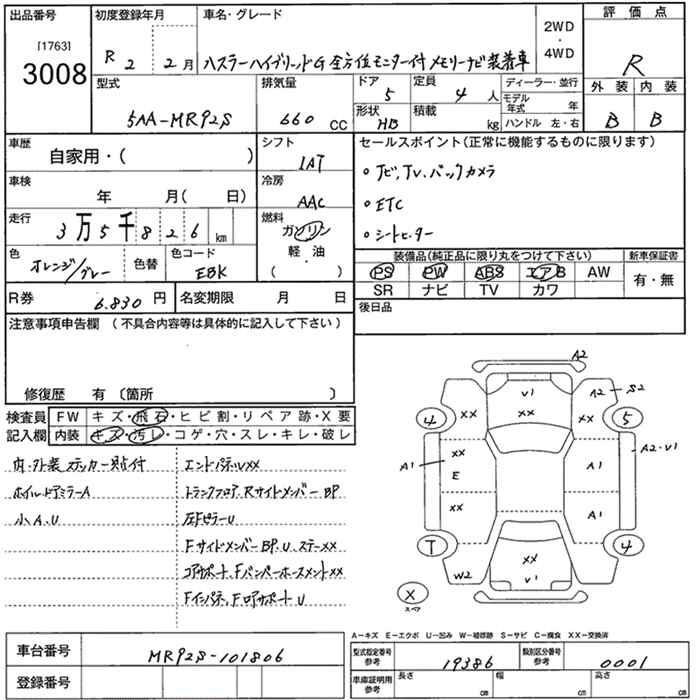 出品番号
[1763]
3008
初度登録年月
R 2 年 2 月
車名・グレード
ハスラーハイブリッドG 全方位モニター付メモリーナビ装着車
2WD
・
4WD
評価点
R
外装 内装
B B
型式
5AA-MR92S
排気量
660 CC
ドア
5
定員
4 人
形状
HB
積載
kg
ディーラー・並行
モデル年式 年
ハンドル 左・右
車歴
自家用・( )
シフト
IAT
車検
年 月( 日)
冷房
AAC
走行
3万5千826 km
燃料
ガソリン
軽・油
( )
色
オレンジ/グレー
色替
色コード
EBK
R券
6.830 円
名変期限 月 日
セールスポイント(正常に機能するものに限ります)
・ナビ,TV,バックカメラ
・ETC
・シートヒーター
装備品(純正品に限り丸をつけて下さい)
新車保証書
PS PW ABS エアB AW
有・無
SR ナビ TV カワ
後日品
注意事項申告欄(不具合内容等は具体的に記入して下さい)
修復歴 有〔箇所 〕
検査員
記入欄
FW キズ・飛石・ヒビ割・リペア跡・X要
内装 キズ・汚レ・コゲ・穴・スレ・キレ・破レ
内・外装ステッカー貼付
ホイルドアミラーA
小A.U
エンドパネルXX
トランクフロア、RサイドメンバーBP
左FピラーU
FサイドメンバーBP.U.ステーXX
コアサポート、FバンパーホースメントXX
Fインパネ、FロアサポートU
A2
V1
XX
A2
S2
XX
XX
4
5
XX
E
A1
A1
A2・V1
XX
A1
T
4
W2
XX
V1
X
スペア
A-キズ E-エクボ U-凹み W-補修跡 S-サビ C-腐食 XX-交換済
車台番号
MR92S-101806
登録番号
型式指定番号
参考
19386
類別区分番号
参考
0001
車庫証明用
参考
長さ cm
幅 cm
高さ cm